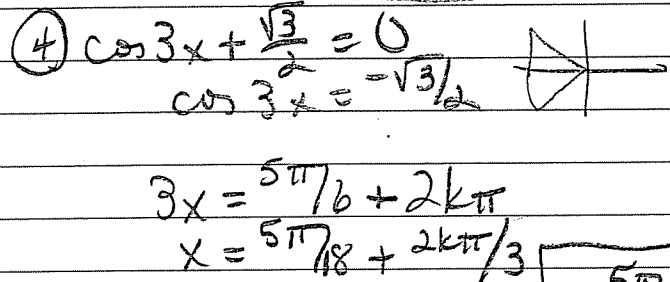 ④ cos 3x + √3/2 = 0
cos 3x = -√3/2
3x = 5π/6 + 2kπ
x = 5π/18 + 2kπ/3
5π